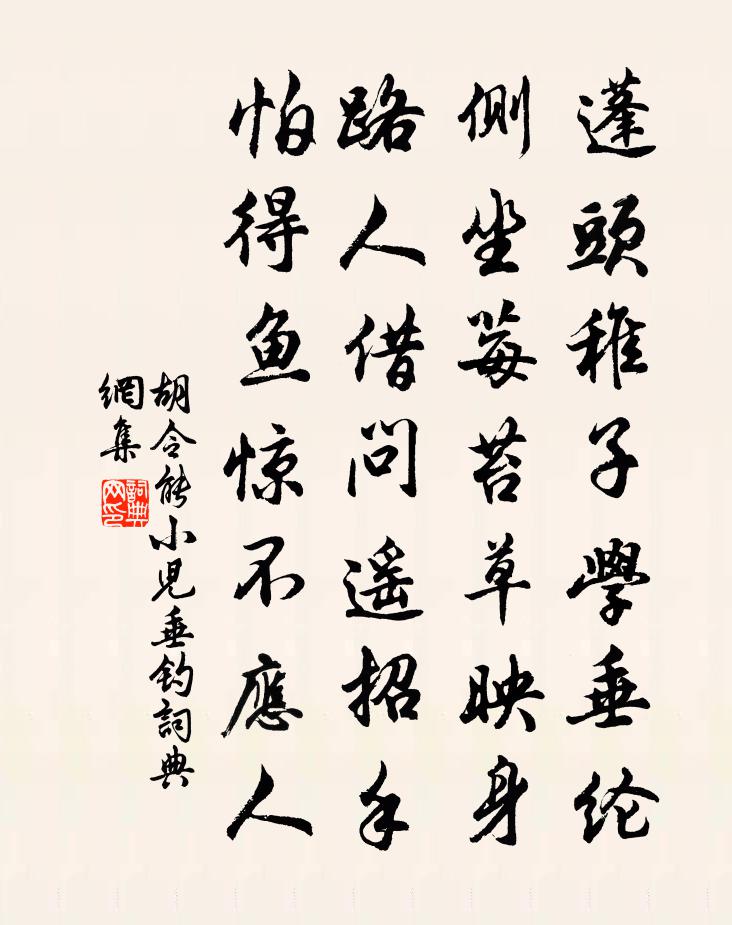 蓬頭稚子學垂纶
側坐莓苔草映身
路人借问遥招手
怕得鱼惊不應人
胡令能小児垂钓詞典
網集
詞典
网印